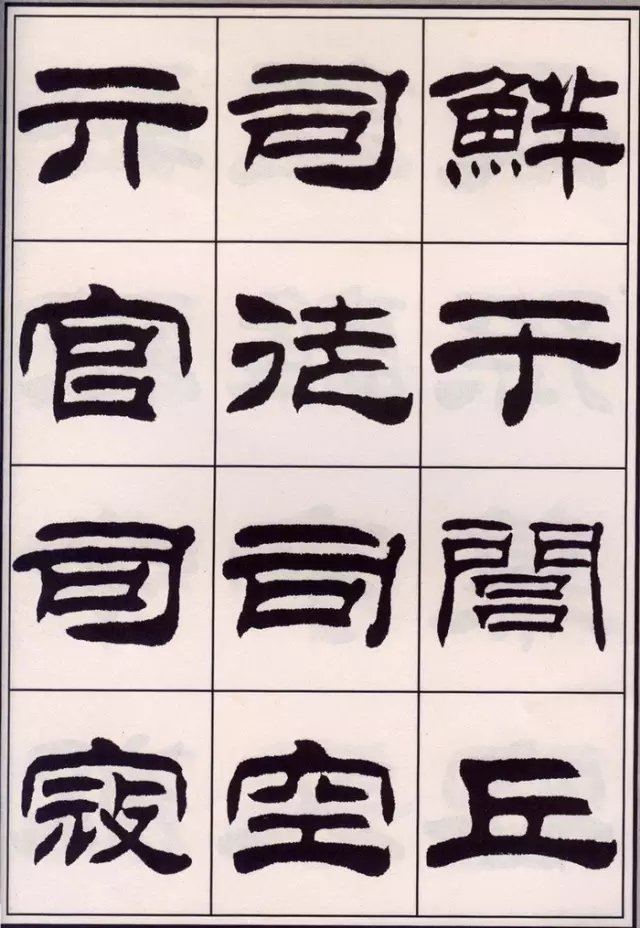 鮮于閭丘
司徒司空
亓官司寇